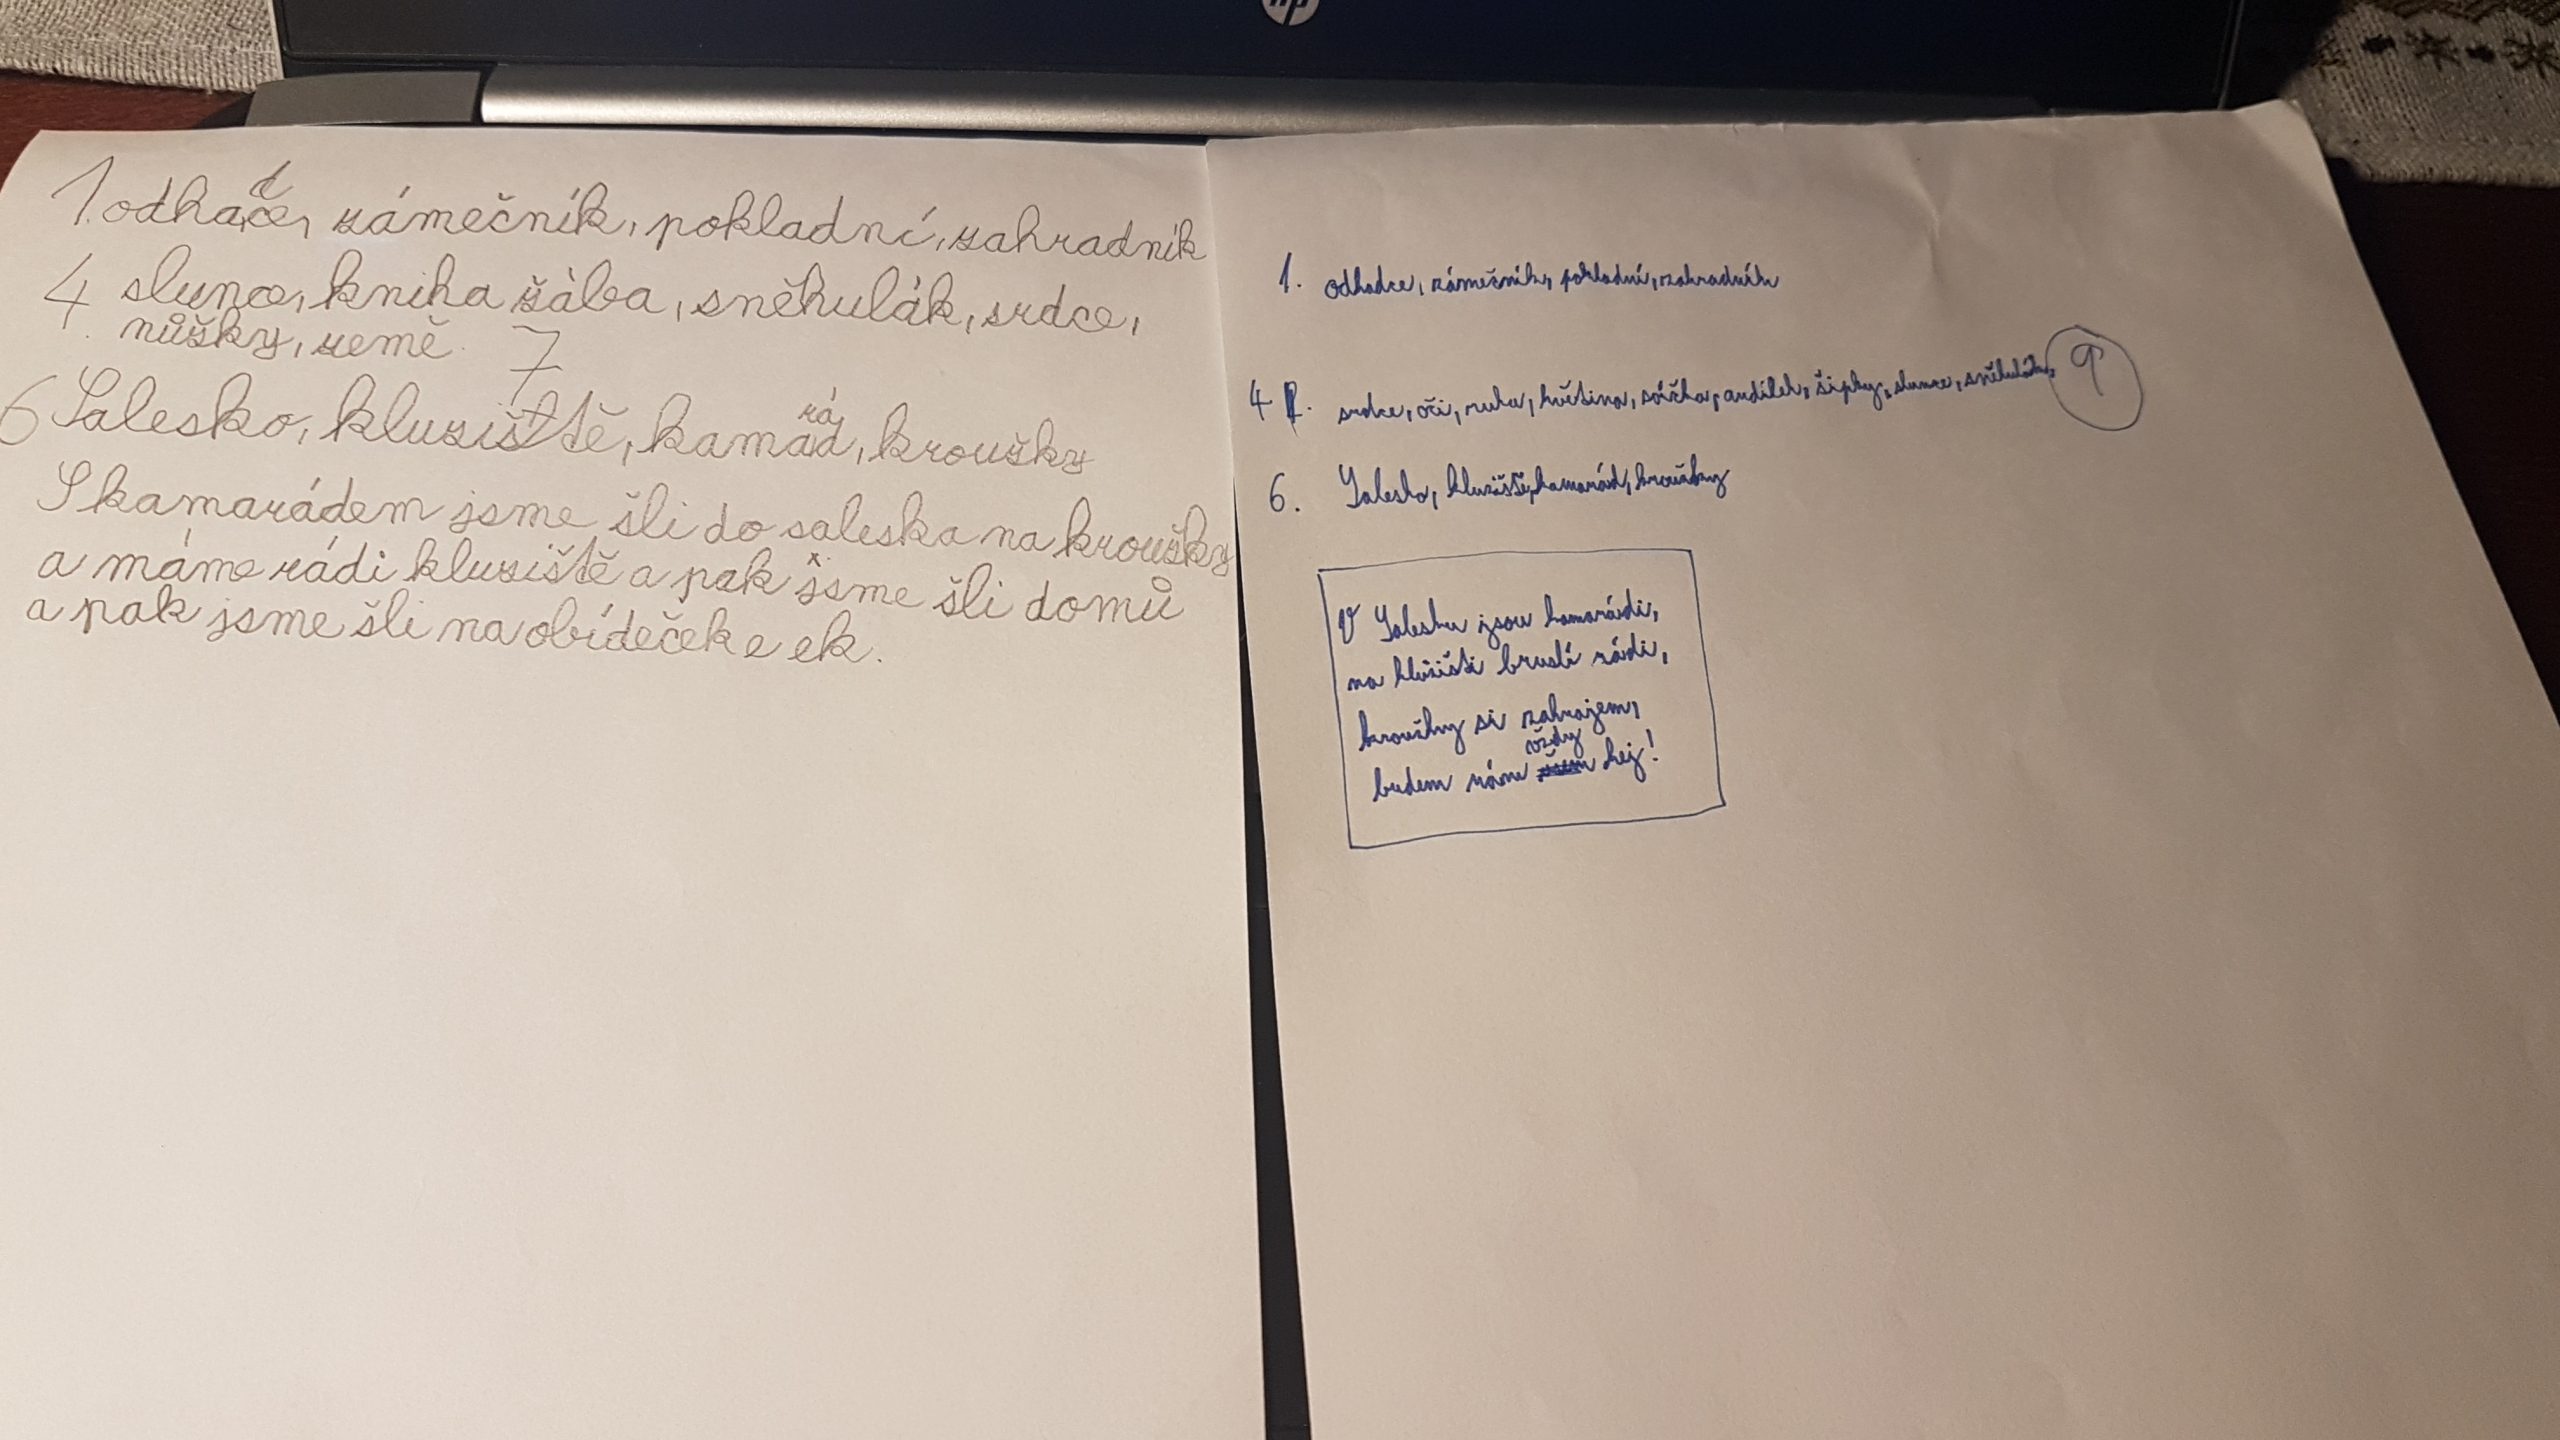 hp
1. odhadče, zámečník, pokladní, zahradník
4. slunce, kniha žába, sněhulák, srdce,
nůžky, země. 7
6 Salesko, kluziště, kamarád, kroužky
S kamarádem jsme šli do saleska na kroužky
a máme rádi kluziště a pak jsme šli domů
a pak jsme šli na obídeček e ek.
1. odhadce, zámečník, pokladní, zahradník
4. srdce, oči, ruka, květina, andílek, šipky, slunce, sněhulák, 9
6. Salesko, kluziště, kamarád, kroužky
V Salesku jsou kamarádi,
na kluzišti bruslí rádi,
kroužky si zahrajem,
budem vždy hej!